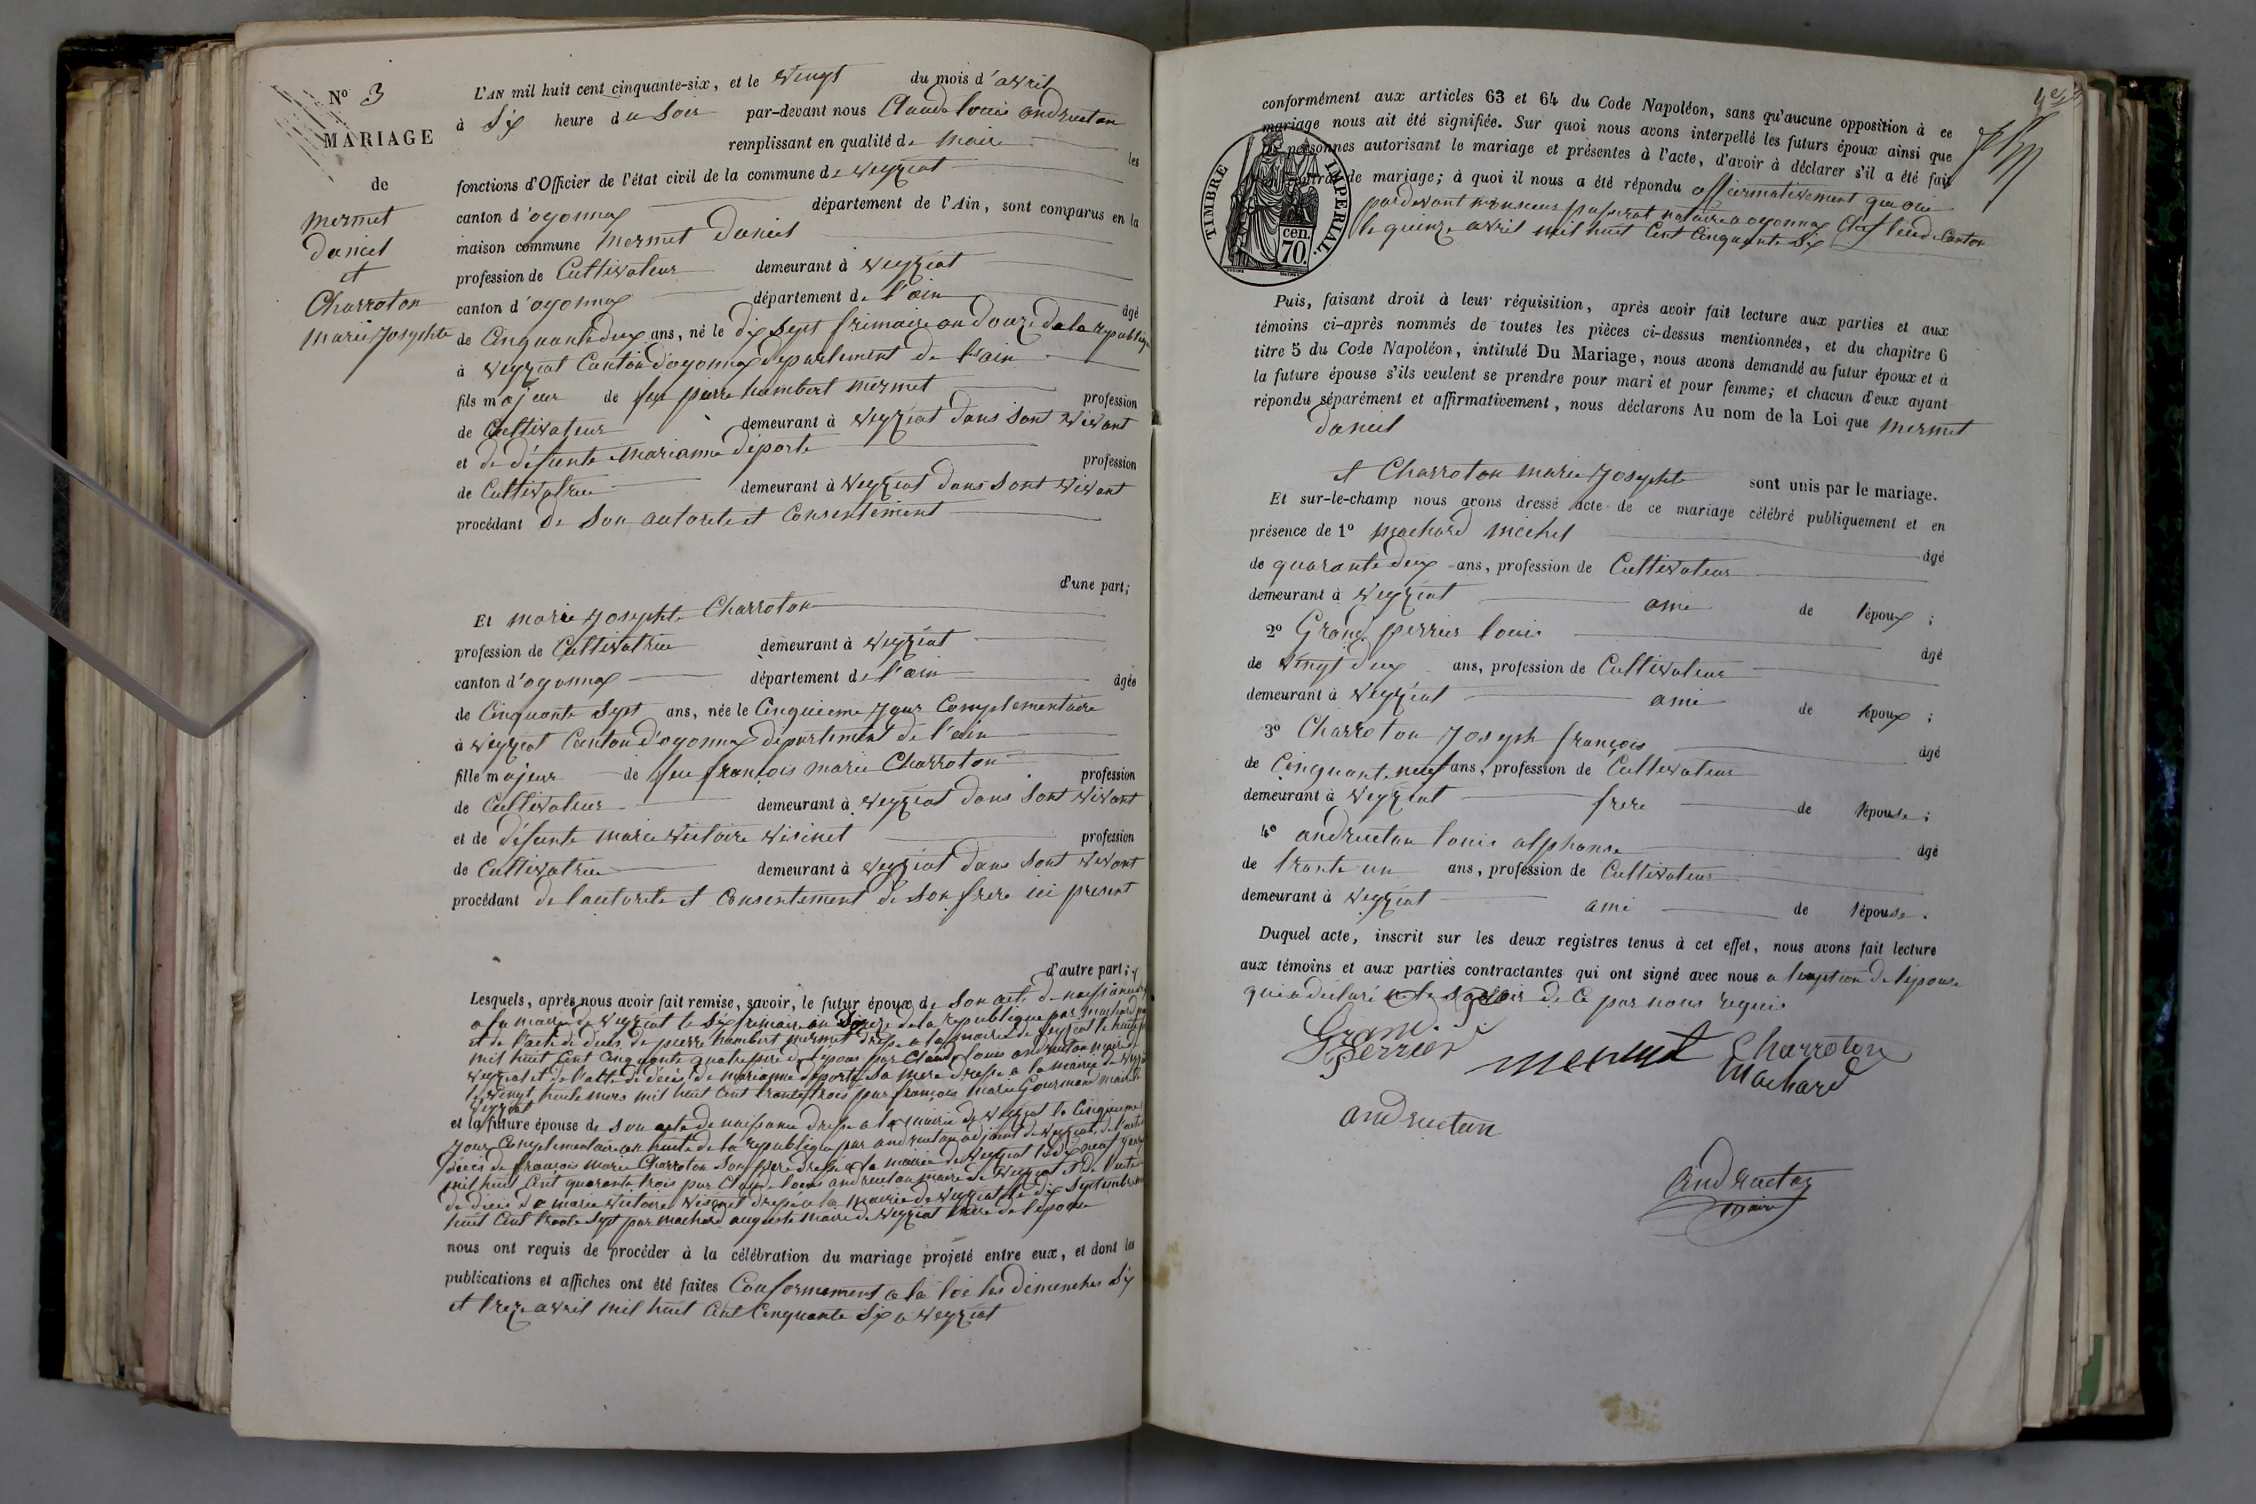 N° 3
MARIAGE
de
mermet
daniel
et
Charroton
marie Josephte
L'AN mil huit cent cinquante-six, et le vingt du mois d'avril
à Six heure du Soir par-devant nous Claude louis andruetan
remplissant en qualité de maire les
fonctions d'Officier de l'état civil de la commune de veyziat
canton d'oyonnax département de l'Ain, sont comparus en la
maison commune mermet daniel
profession de Cultivateur demeurant à veyziat
canton d'oyonnax département de l'ain âgé
de Cinquante deux ans, né le dix sept frimaire an douze de la republique
à veyziat Canton d'oyonnax departement de l'ain
fils majeur de feu pierre humbert mermet profession
de Cultivateur demeurant à veyziat dans sont vivant
et de défunte marianne déporte profession
de Cultivatrice demeurant à veyziat dans sont vivant
procédant de son autorite et Consentement
d'une part;
Et marie Josephte Charroton
profession de Cultivatrice demeurant à veyziat
canton d'oyonnax département de l'ain âgée
de Cinquante sept ans, née le Cinquieme Jour Complementaire
à veyziat Canton d'oyonnax departement de l'ain
fille majeur de feu françois marie Charroton profession
de Cultivateur demeurant à veyziat dans sont vivant
et de défunte marie victoire visinet profession
de Cultivatrice demeurant à veyziat dans sont vivant
procédant de l'autorite et consentement de son frere ici present
d'autre part;
Lesquels, après nous avoir fait remise, savoir, le futur époux de son acte de naissance
a la mairie de veyziat le six frimaire an douze de la republique par machard
et de l'acte de déces de pierre humbert mermet dressé a la mairie de veyziat le huit
mil huit cent cinquante quatre pere de l'epoux par Claude louis andruetan maire de
veyziat et de l'acte de déces de marianne déporte sa mere dressé a la mairie de
le vingt huit mars mil huit cent trente trois par françois marie Gourmand maire de
veyziat
et la future épouse de son acte de naissance dressé a la mairie de veyziat le Cinquieme
Jour Complementaire an huit de la republique par andruetan adjoint de veyziat de l'acte
déces de françois marie Charroton son pere dressé a la mairie de veyziat le dix neuf
mil huit cent quarante trois par Claude louis andruetan maire de veyziat et de l'acte
de déces de marie victoire visinet dressé a la mairie de veyziat le dix septembre
huit cent trente sept par machard auguste maire de veyziat mere de l'epouse
nous ont requis de procéder à la célébration du mariage projeté entre eux, et dont les
publications et affiches ont été faites Conformement a la loi les dimenches Six
et treize avril mil huit cent Cinquante six a veyziat
conformément aux articles 63 et 64 du Code Napoléon, sans qu'aucune opposition à ce
mariage nous ait été signifiée. Sur quoi nous avons interpellé les futurs époux ainsi que
personnes autorisant le mariage et présentes à l'acte, d'avoir à déclarer s'il a été fait
de mariage; à quoi il nous a été répondu affirmativement que oui
pardevant monsieur passerat notaire a oyonnax Chef lieu de Canton
le quinze avril mil huit cent cinquante six
TIMBRE IMPERIAL.
cen.
70.
Puis, faisant droit à leur réquisition, après avoir fait lecture aux parties et aux
témoins ci-après nommés de toutes les pièces ci-dessus mentionnées, et du chapitre 6
titre 5 du Code Napoléon, intitulé Du Mariage, nous avons demandé au futur époux et à
la future épouse s'ils veulent se prendre pour mari et pour femme; et chacun d'eux ayant
répondu séparément et affirmativement, nous déclarons Au nom de la Loi que mermet
daniel
et Charroton marie Josephte sont unis par le mariage.
Et sur-le-champ nous avons dressé acte de ce mariage célébré publiquement et en
présence de 1° machard michel âgé
de quarante deux ans, profession de Cultivateur
demeurant à veyziat ami de l'époux;
2° Grand perrier louis âgé
de vingt deux ans, profession de Cultivateur
demeurant à veyziat ami de l'époux;
3° Charroton Joseph françois âgé
de Cinquant neuf ans, profession de Cultivateur
demeurant à veyziat frere de l'épouse;
4° andruetan louis alphonse âgé
de trante un ans, profession de Cultivateur
demeurant à veyziat ami de l'épouse.
Duquel acte, inscrit sur les deux registres tenus à cet effet, nous avons fait lecture
aux témoins et aux parties contractantes qui ont signé avec nous a l'exeption de l'épouse
qui a déclaré ne le savoir de ce par nous requis
Grand
Perrier mermet Charroton
Machard
andruetan
andruetan
maire